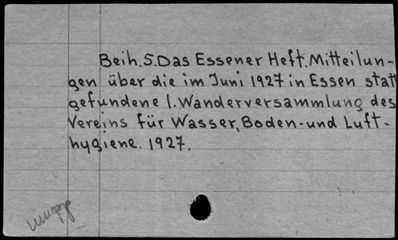 Beih.5.Das Essener Heft.Mitteilun-
gen über die im Juni 1927 in Essen statt
gefundene 1.Wanderversammlung des
Vereins für Wasser, Boden-und Luft-
hygiene. 1927.